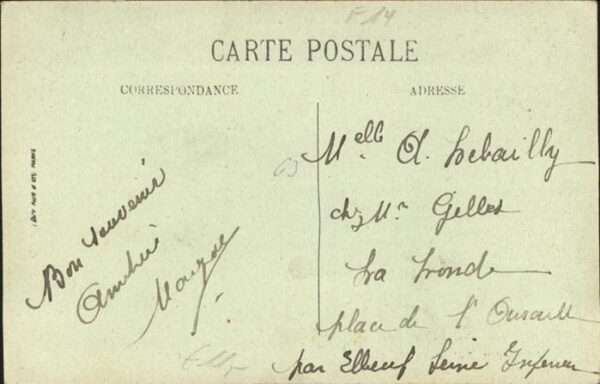 F 14
CARTE POSTALE
CORRESPONDANCE
ADRESSE
Bon souvenir
Amitié
Melle A. Lebailly
chez Mr Gelles
La Londe
place de l'
par Elbeuf Seine Inferieu